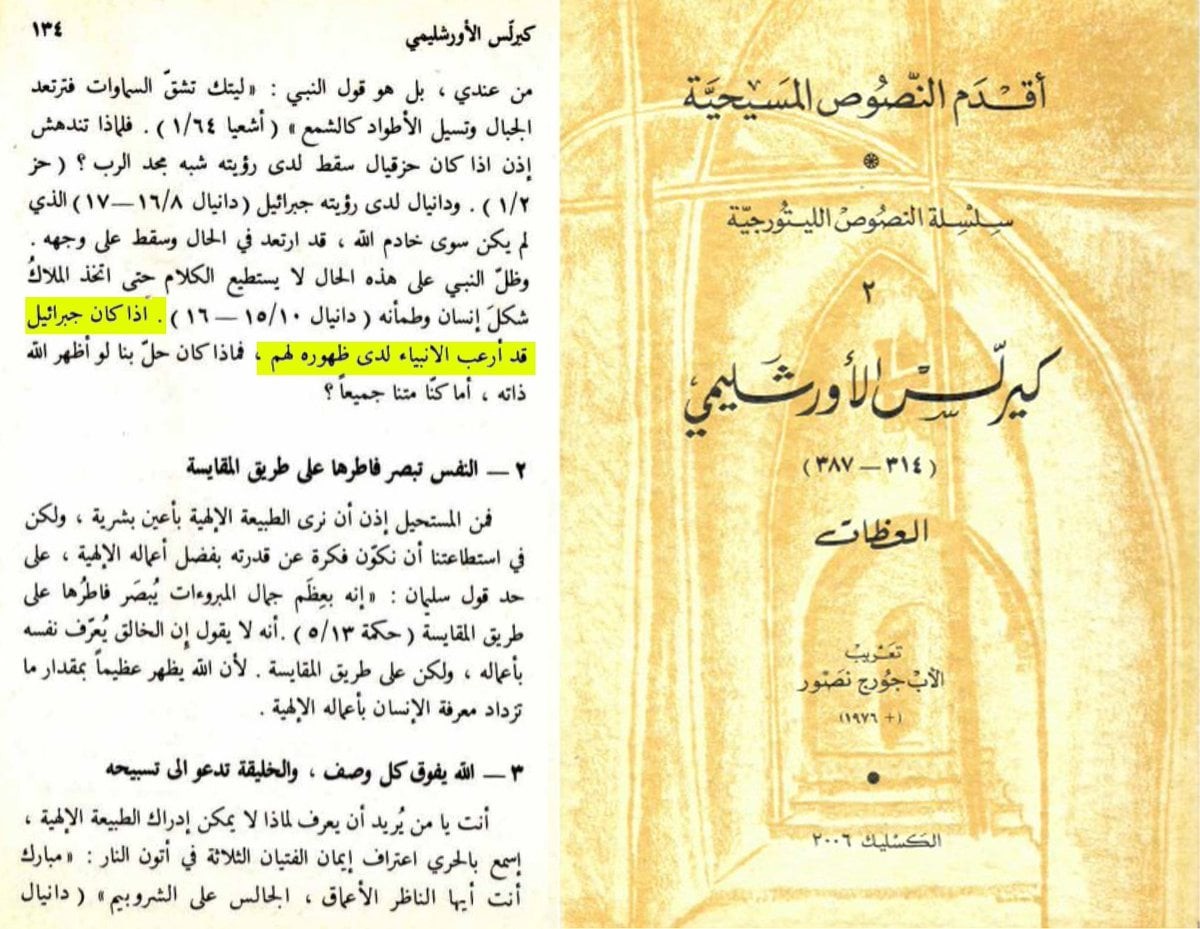 كيرلّس الأورشليمي ١٣٤
من عندي ، بل هو قول النبي : «ليتك تشقّ السماوات فترتعد
الجبال وتسيل الأطواد كالشمع» ( أشعيا ١/٦٤ ) . فلماذا تندهش
إذن اذا كان حزقيال سقط لدى رؤيته شبه مجد الرب ؟ ( حز
١/٢ ) . ودانيال لدى رؤيته جبرائيل (دانيال ١٦/٨—١٧) الذي
لم يكن سوى خادم الله ، قد ارتعد في الحال وسقط على وجهه .
وظلّ النبي على هذه الحال لا يستطيع الكلام حتى اتخذ الملاكُ
شكلَ إنسان وطمأنه ( دانيال ١٥/١٠ — ١٦ ) . اَذا كان جبرائيل
قد أرعب الانبياء لدى ظهوره لهم ، فماذا كان حلّ بنا لو أظهر الله
ذاته ، أما كنّا متنا جميعاً ؟
٢ — النفس تبصر فاطرها على طريق المقايسة
فمن المستحيل إذن أن نرى الطبيعة الإلهية بأعين بشرية ، ولكن
في استطاعتنا أن نكوّن فكرة عن قدرته بفضل أعماله الإلهية ، على
حد قول سليمان : «إنه بعِظَم جمال المبروءات يُبصَر فاطرُها على
طريق المقايسة ( حكمة ٥/١٣ ) .أنه لا يقول إن الخالق يُعرّف نفسه
بأعماله ، ولكن على طريق المقايسة . لأن الله يظهر عظيماً بمقدار ما
تزداد معرفة الإنسان بأعماله الإلهية .
٣ — الله يفوق كل وصف ، والخليقة تدعو الى تسبيحه
أنت يا من يُريد أن يعرف لماذا لا يمكن إدراك الطبيعة الإلهية ،
إسمع بالحري اعتراف إيمان الفتيان الثلاثة في أتون النار : «مبارك
أنت أيها الناظر الأعماق ، الجالس على الشروبيم» ( دانيال
أقدَم النّصُوص المسَيحيَّة
سِلسِلة النصُوصْ الليتُورجيَّة
٢
كيرلّسْ الأورشَليمي
( ٣١٤ — ٣٨٧ )
العظات
تعَريبْ
الأبْ جُورج نصّور
( + ١٩٧٦)
الكَسليك ٢٠٠٦